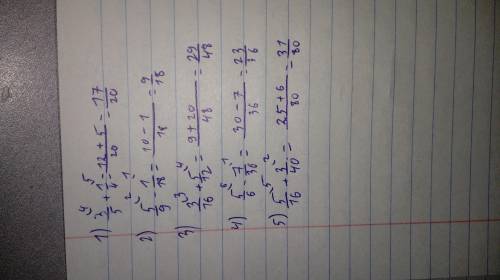 1) 3/5 + 1/4 = (12 + 5)/20 = 17/20
2) 5/9 - 1/18 = (10 - 1)/18 = 9/18
3) 3/16 + 5/12 = (9 + 20)/48 = 29/48
4) 5/6 - 7/36 = (30 - 7)/36 = 23/36
5) 5/16 + 3/40 = (25 + 6)/80 = 31/80